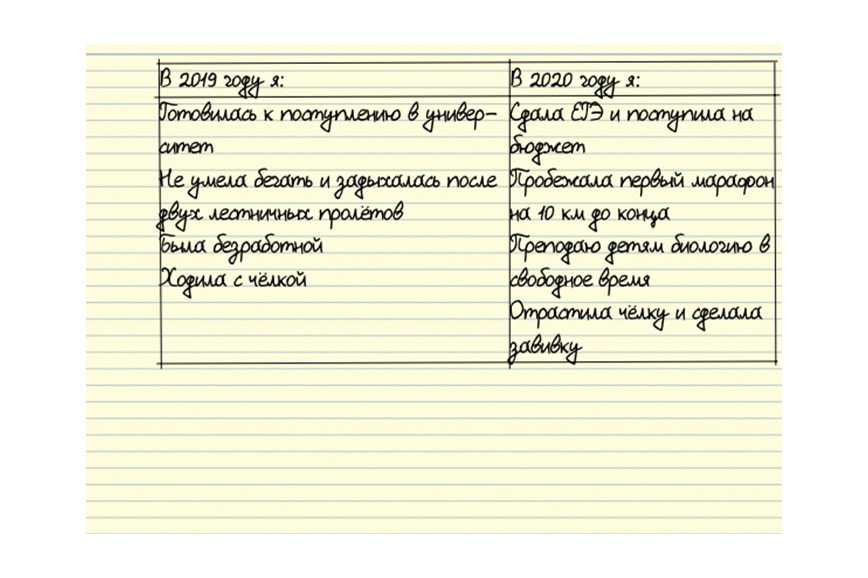 В 2019 году я:
Готовилась к поступлению в универ-
ситет
Не умела бегать и задыхалась после
двух лестничных пролётов
Была безработной
Ходила с чёлкой
В 2020 году я:
Сдала ЕГЭ и поступила на
бюджет
Пробежала первый марафон
на 10 км до конца
Преподаю детям биологию в
свободное время
Отрастила чёлку и сделала
завивку